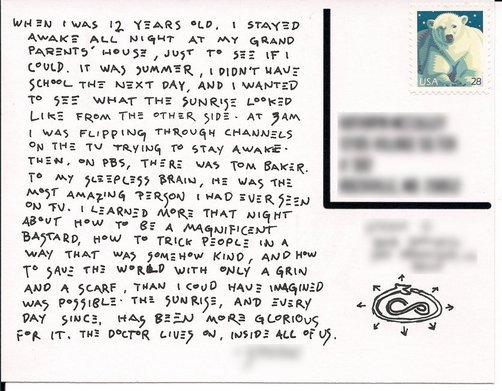 WHEN I WAS 12 YEARS OLD, I STAYED
AWAKE ALL NIGHT AT MY GRAND
PARENTS' HOUSE, JUST TO SEE IF I
COULD. IT WAS SUMMER, I DIDN'T HAVE
SCHOOL THE NEXT DAY, AND I WANTED
TO SEE WHAT THE SUNRISE LOOKED
LIKE FROM THE OTHER SIDE. AT 3AM
I WAS FLIPPING THROUGH CHANNELS
ON THE TV TRYING TO STAY AWAKE.
THEN, ON PBS, THERE WAS TOM BAKER.
TO MY SLEEPLESS BRAIN, HE WAS THE
MOST AMAZING PERSON I HAD EVER SEEN
ON TV. I LEARNED MORE THAT NIGHT
ABOUT HOW TO BE A MAGNIFICENT
BASTARD, HOW TO TRICK PEOPLE IN A
WAY THAT WAS SOMEHOW KIND, AND HOW
TO SAVE THE WORLD WITH ONLY A GRIN
AND A SCARF, THAN I COULD HAVE IMAGINED
WAS POSSIBLE. THE SUNRISE, AND EVERY
DAY SINCE, HAS BEEN MORE GLORIOUS
FOR IT. THE DOCTOR LIVES ON, INSIDE ALL OF US.
USA 28